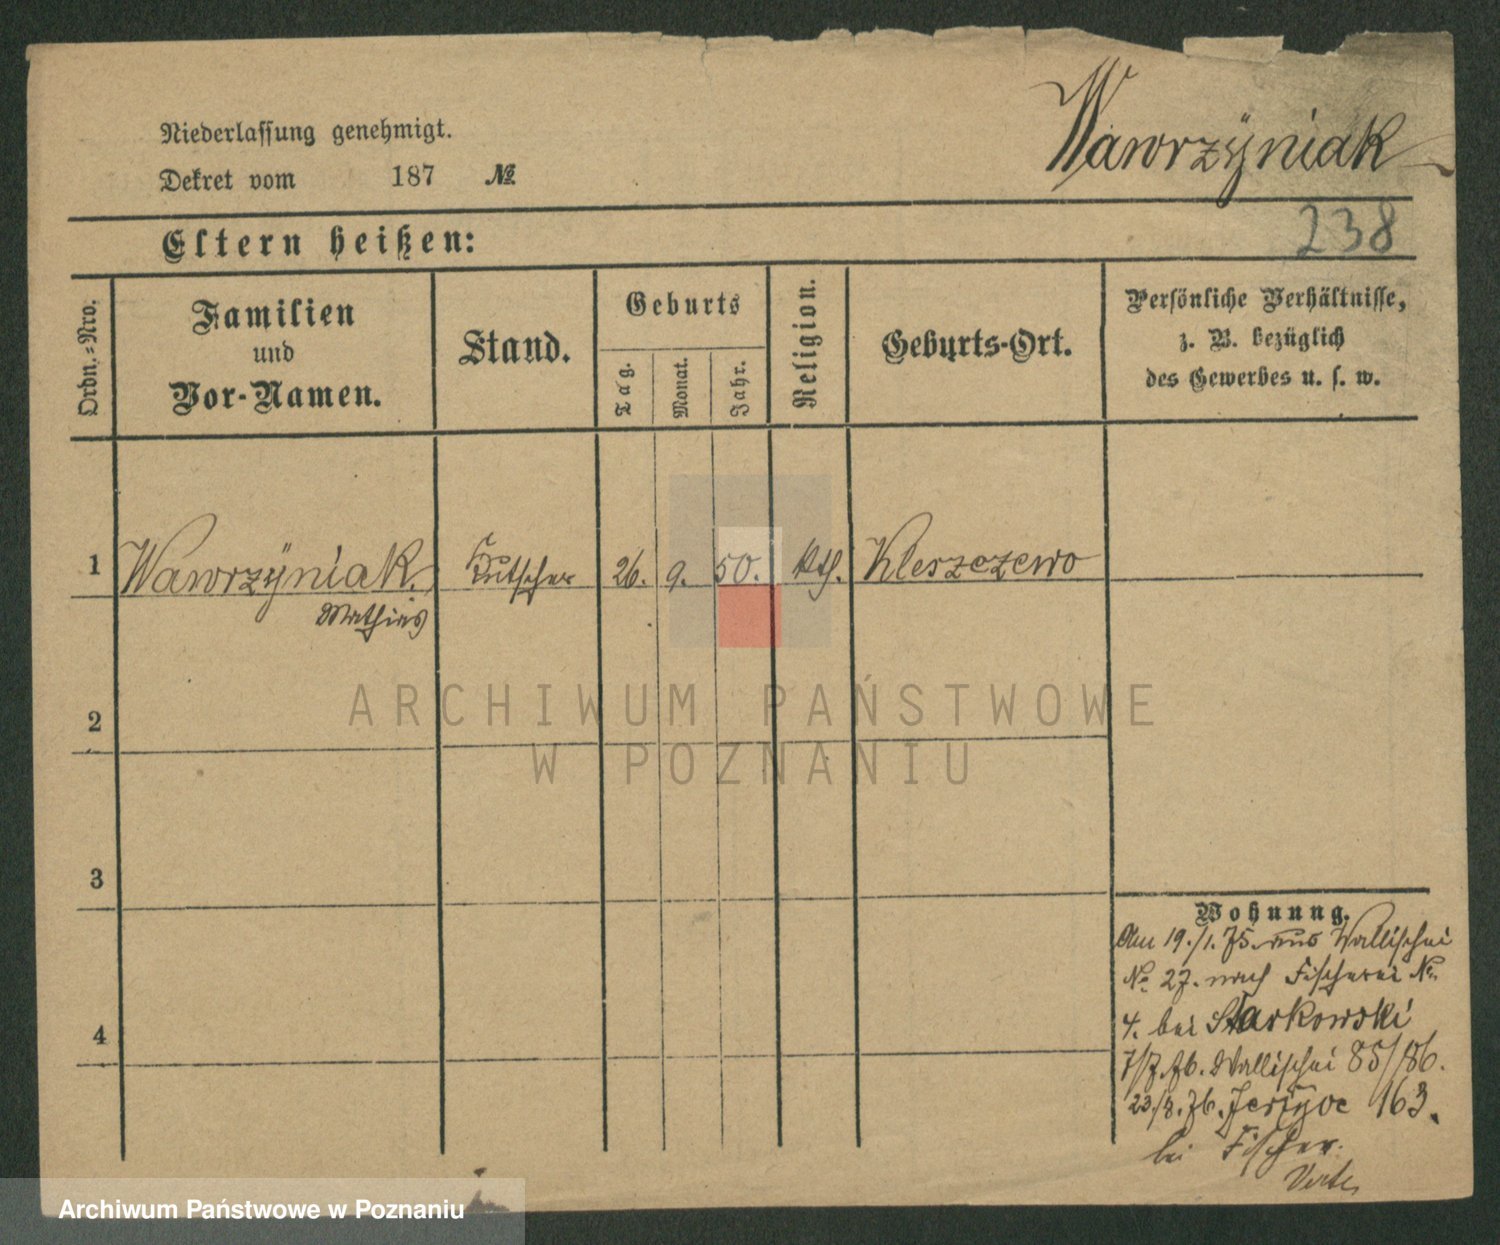 Wawrzÿniak
Niederlassung genehmigt.
Dekret vom 187 №
238
Eltern heißen:
Ordn.-Nro.
Familien
und
Vor-Namen.
Stand.
Geburts
Tag.
Monat.
Jahr.
Religion.
Geburts-Ort.
Persönliche Verhältnisse,
z. B. bezüglich
des Gewerbes u. s. w.
1 Wawrzÿniak. Kutscher 26. 9. 50. kth. Kleszczewo
Mathias
2
3
4
Wohnung.
Am 19./1. 75. aus Wallischei
No. 27. nach Fischerei No.
4. bei Starkowski
7/7. 76. Wallischei 85/86.
23./8. 76. Jerzyce 163.
bei Fischer.
ARCHIWUM PAŃSTWOWE
W POZNANIU
Archiwum Państwowe w Poznaniu